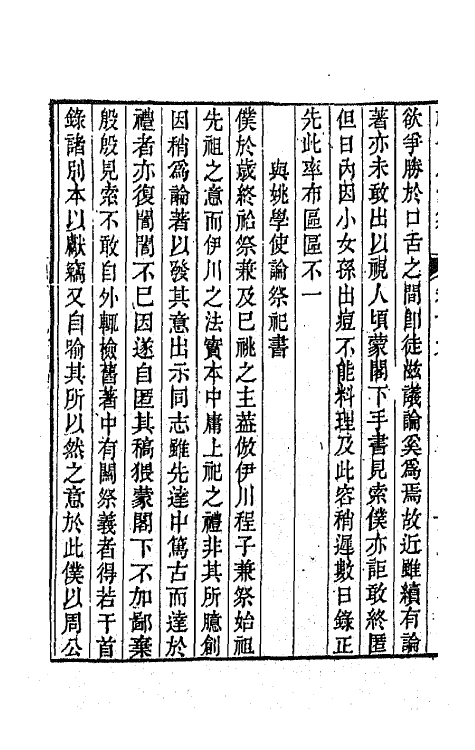 欲爭勝於口舌之間卽徒滋議論奚爲焉故近雖續有論
著亦未敢出以視人頃蒙閣下手書見索僕亦詎敢終匿
但日內因小女孫出痘不能料理及此容稍遲數日錄正
先此率布區區不一
與姚學使論祭祀書
僕於歲終祫祭兼及已祧之主葢倣伊川程子兼祭始祖
先祖之意而伊川之法實本中庸上祀之禮非其所臆創
因稍爲論著以發其意出示同志雖先達中篤古而達於
禮者亦復誾誾不已因遂自匿其稿猥蒙閣下不加鄙棄
殷殷見索不敢自外輒檢舊著中有關祭義者得若干首
錄諸別本以獻竊又自喻其所以然之意於此僕以周公